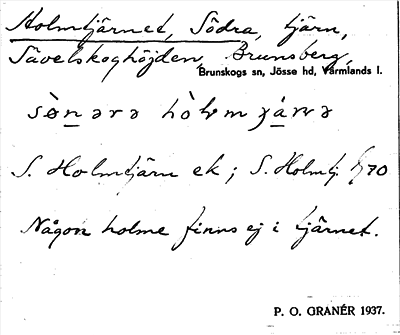 Holmtjärnet, Södra, tjärn,
Sävelskoghöjden, Brunsberg,
Brunskogs sn, Jösse hd, Värmlands l.
S. Holmtjärn ek; S. Holmtj 70
Någon holme finns ej i tjärnet.
P. O. GRANÉR 1937.